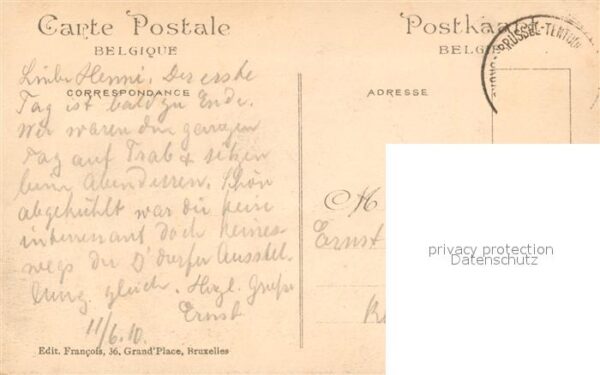 Carte Postale
BELGIQUE
Postkaart
BELGIË
BRÜSSEL-TENTOON
CORRESPONDANCE
ADRESSE
Der erste
Tag ist bald zu Ende.
Wir waren den ganzen
Tag auf Trab & sitzen
beim Abendessen. Schön
abgekühlt war die
interessant doch keines-
wegs der D'dorfer Ausstel-
lung gleich. Herzl. Grüße
Ernst
11/6.10.
Ernst
privacy protection
Datenschutz
Edit. François, 36, Grand'Place, Bruxelles